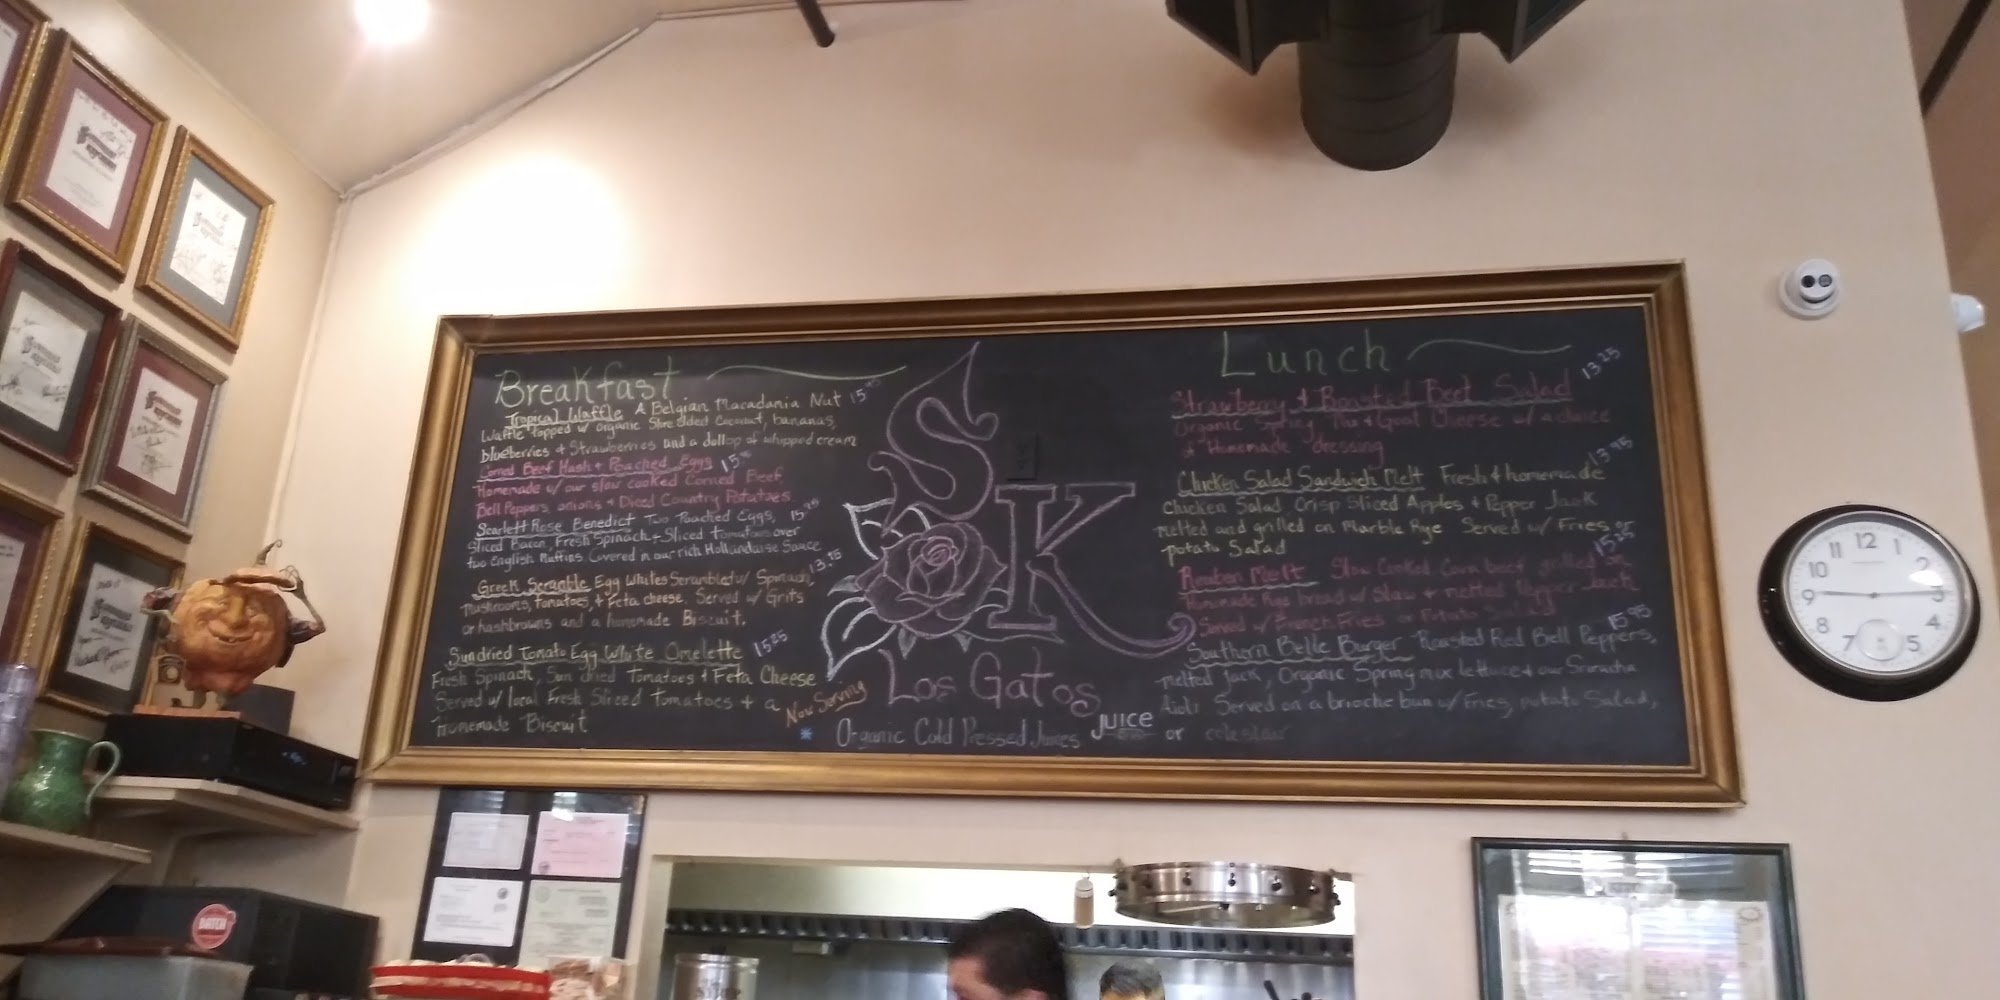 Breakfast
Tropical Waffle A Belgian Macadania Nut 15.95
Waffle topped w/ organic Shredded Coconut, bananas,
blueberries + Strawberries and a dollop of whipped cream
Corned Beef Hash + Poached Eggs 15.95
Homemade w/ our slow cooked Corned Beef
Bell Peppers, onions + Diced Country Potatoes
Scarlett Rose Benedict Two Poached Eggs,
Sliced Bacon, Fresh Spinach + Sliced Tomatoes over
two English Muffins Covered in our rich Hollandaise Sauce
Greek Scramble Egg Whites Scrambled w/ Spinach, 13.25
Mushrooms, Tomatoes, + Feta cheese. Served w/ Grits
or hashbrowns and a homemade Biscuit.
Sundried Tomato Egg White Omelette 15.25
Fresh Spinach, Sun dried Tomatoes + Feta Cheese
Served w/ local Fresh Sliced Tomatoes + a
Homemade Biscuit
SK
Los Gatos
Now Serving
* Organic Cold Pressed Juices
Juice
Lunch
Strawberry + Roasted Beet Salad 13.25
Organic Spring Mix + Goat Cheese w/ a choice
of Homemade dressing
Chicken Salad Sandwich Melt Fresh + homemade 13.95
Chicken Salad, Crisp Sliced Apples + Pepper Jack
melted and grilled on Marble Rye Served w/ Fries or
potato Salad
Reuben Melt Slow Cooked Corn beef grilled on 15.25
Homemade Rye bread w/ Slaw + melted Pepper Jack
Served w/ French Fries or Potato Salad
Southern Belle Burger Roasted Red Bell Peppers, 15.95
melted Jack, Organic Spring mix lettuce + our Sriracha
Aioli Served on a brioche bun w/ Fries, potato Salad,
or coleslaw
12
1
2
3
4
5
7
8
9
10
11